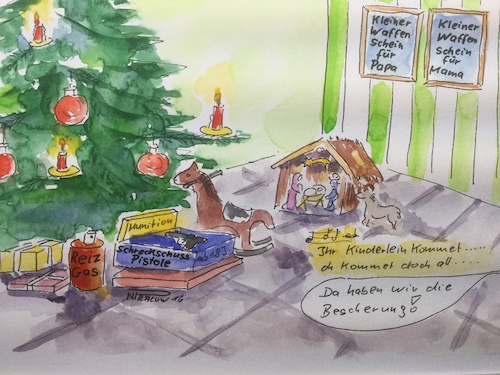 Kleiner
Waffen
schein
für
Papa
Kleiner
Waffen
schein für
Mama
Munition
Schreckschuss
Pistole
ab 18 J
Reiz
Gas
Ihr Kinderlein Kommet.....
oh kommet doch all....
Da haben wir die
Bescherung!